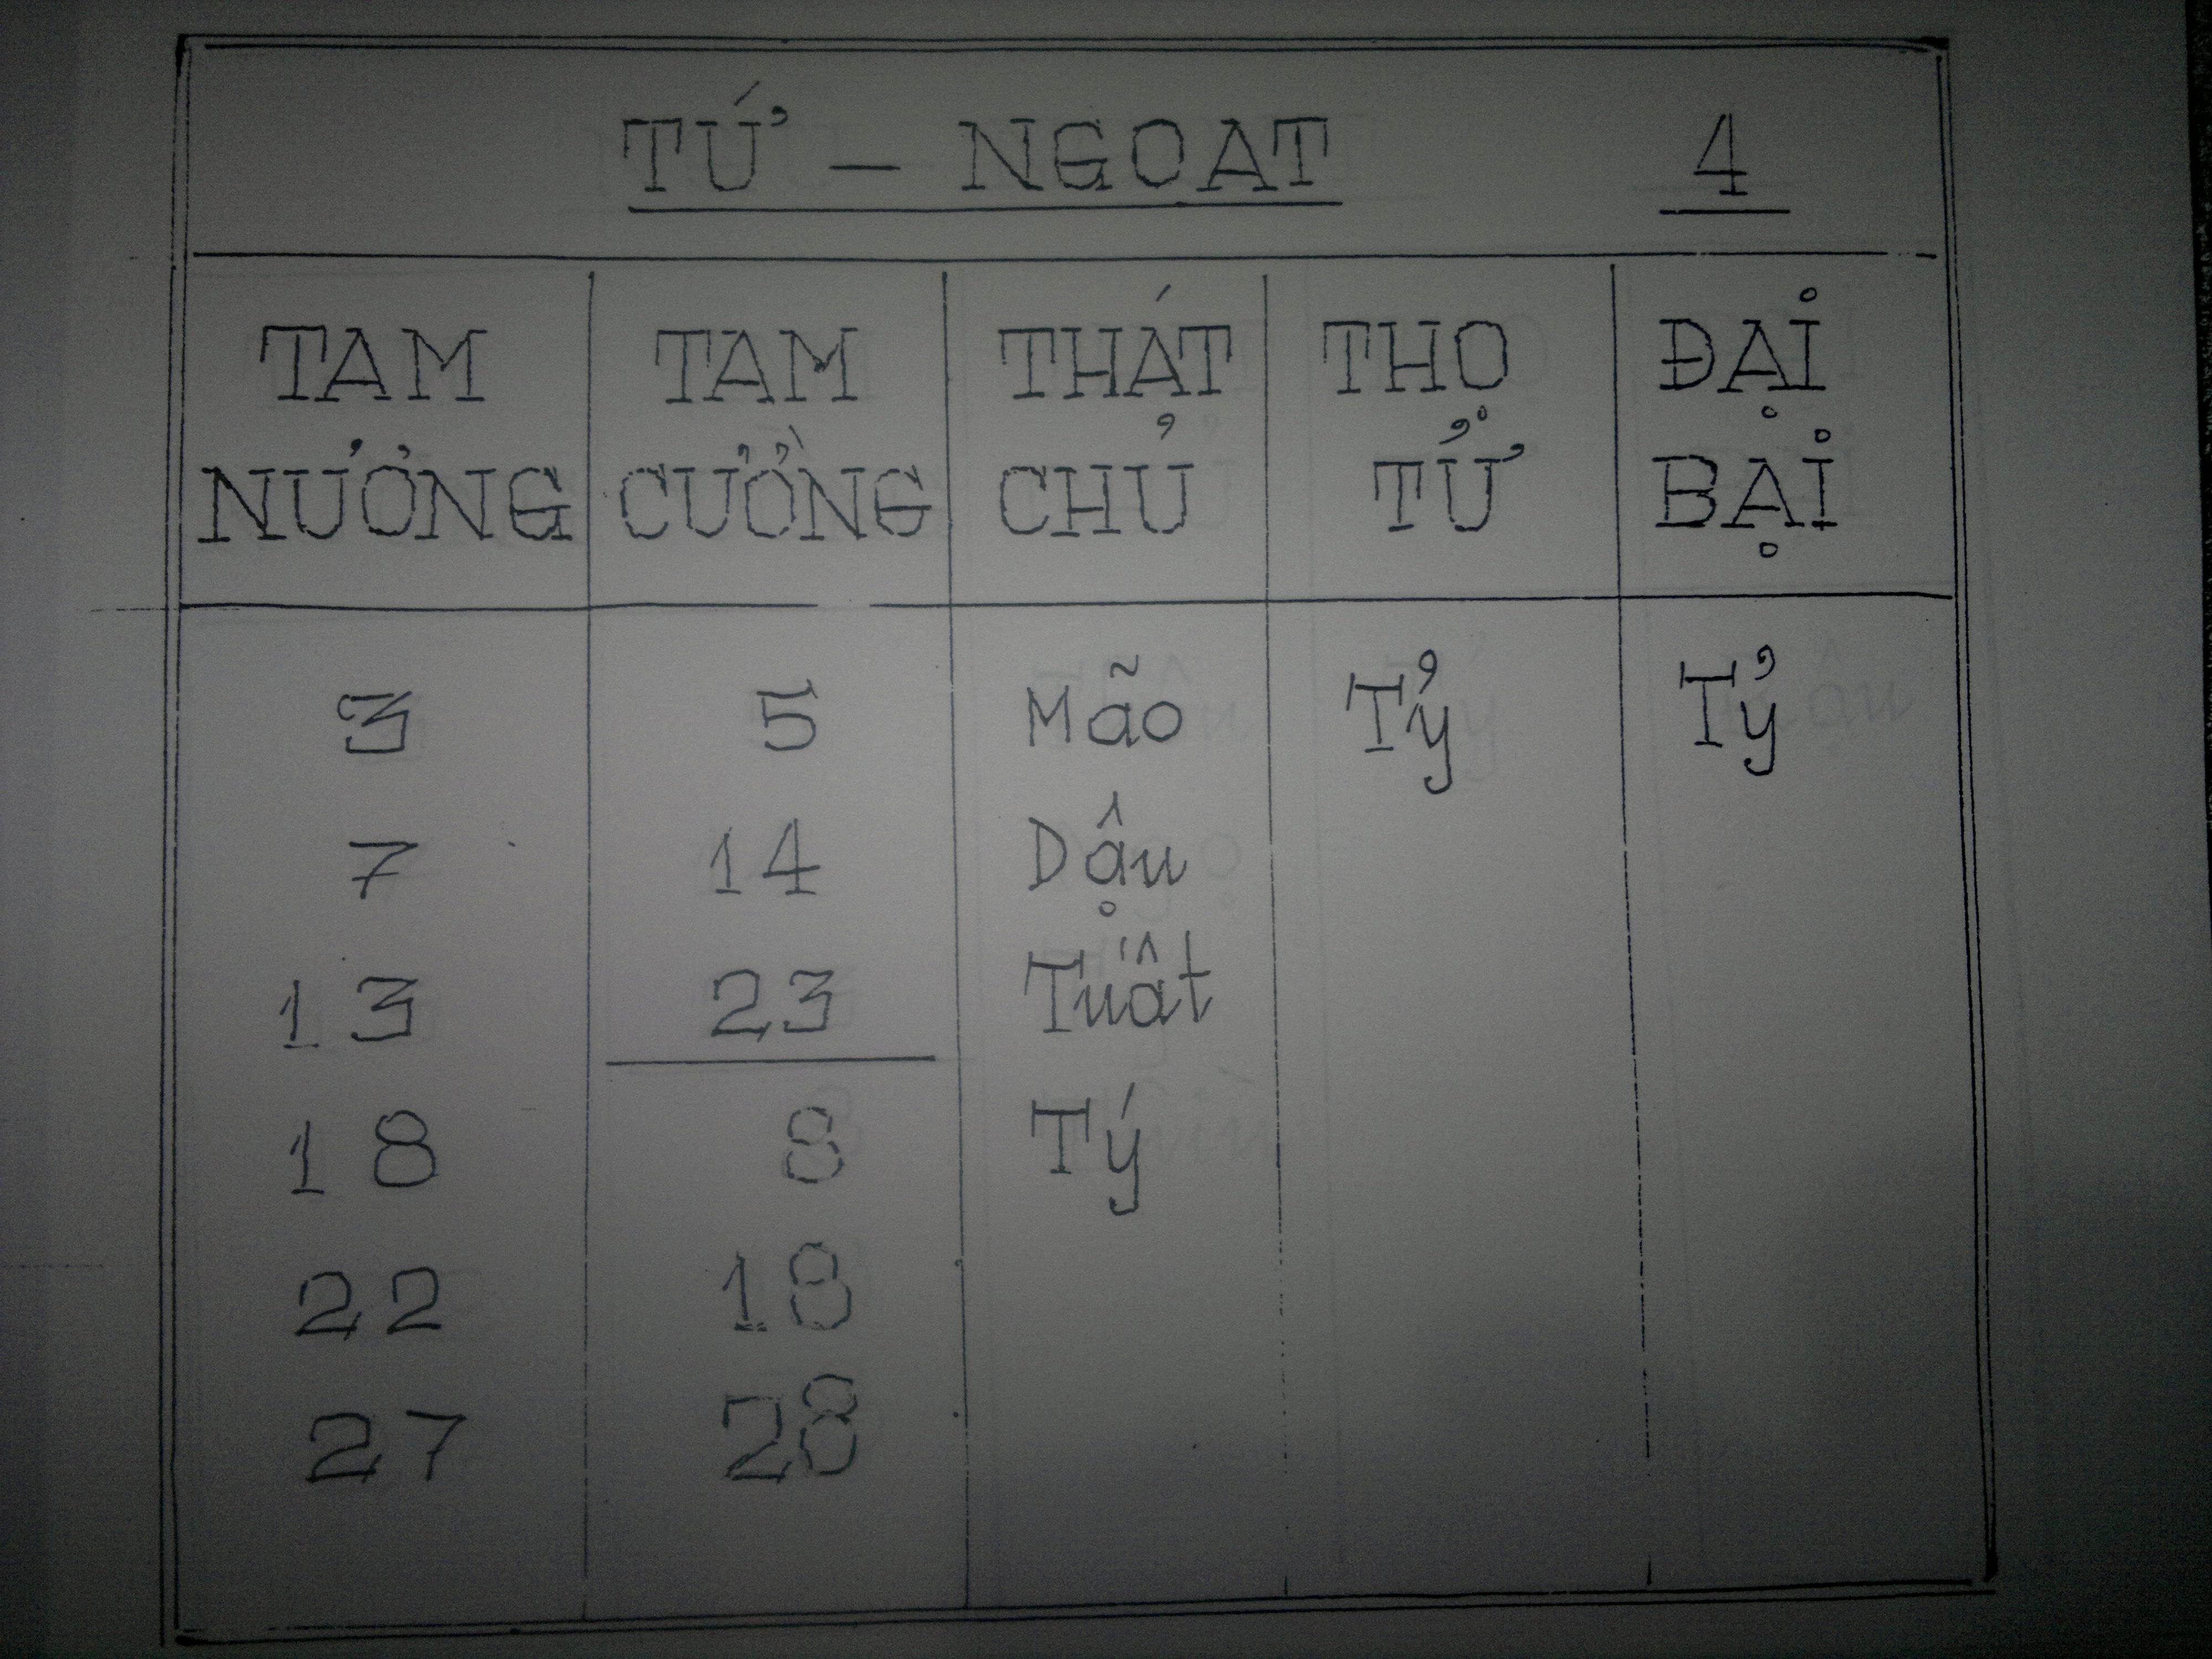 TỨ - NGOAT 4
TAM NƯƠNG TAM CƯỜNG THÁT CHỦ THO TỬ ĐẠI BẠI
3 5 Mão Tỷ Tỷ
7 14 Dậu
13 23 Tuất
18 8 Tý
22 18
27 28